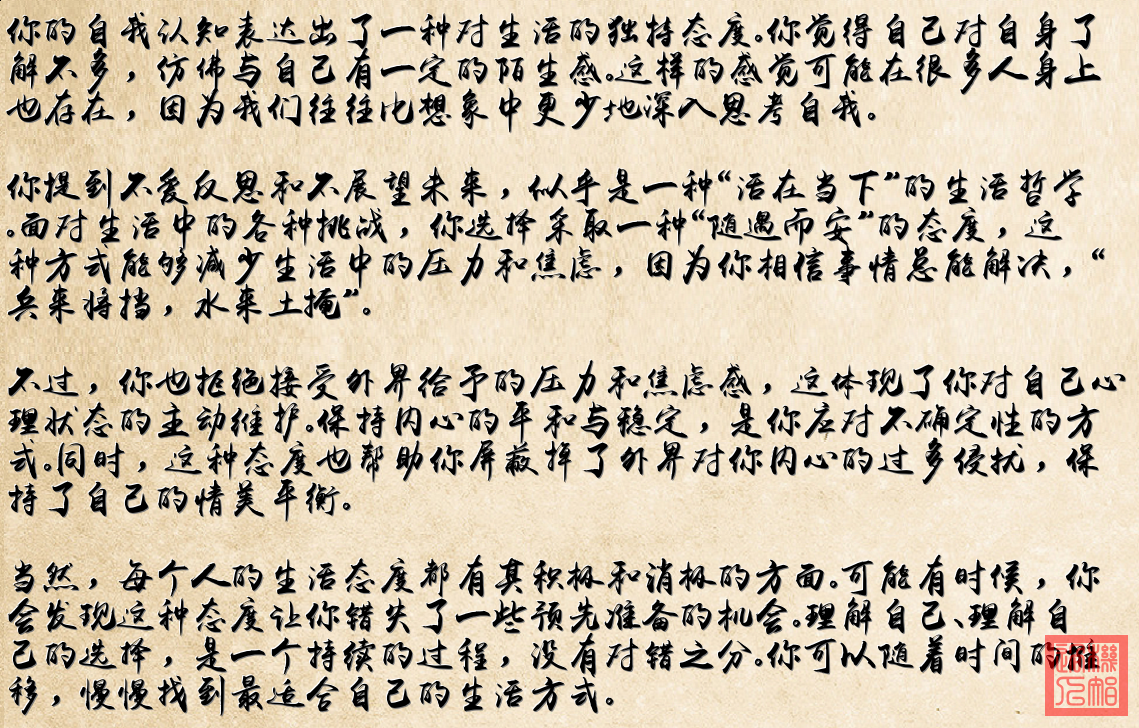 你的自我认知表达出了一种对生活的独特态度.你觉得自己对自身了
解不多，仿佛与自己有一定的陌生感.这样的感觉可能在很多人身上
也存在，因为我们往往比想象中更少地深入思考自我。
你提到不爱反思和不展望未来，似乎是一种“活在当下”的生活哲学
.面对生活中的各种挑战，你选择采取一种“随遇而安”的态度，这
种方式能够减少生活中的压力和焦虑，因为你相信事情总能解决，“
兵来将挡，水来土掩”。
不过，你也拒绝接受外界给予的压力和焦虑感，这体现了你对自己心
理状态的主动维护.保持内心的平和与稳定，是你应对不确定性的方
式.同时，这种态度也帮助你屏蔽掉了外界对你内心的过多侵扰，保
持了自己的情美平衡。
当然，每个人的生活态度都有其积极和消极的方面.可能有时候，你
会发现这种态度让你错失了一些预先准备的机会.理解自己、理解自
己的选择，是一个持续的过程，没有对错之分.你可以随着时间的推
移，慢慢找到最适合自己的生活方式。